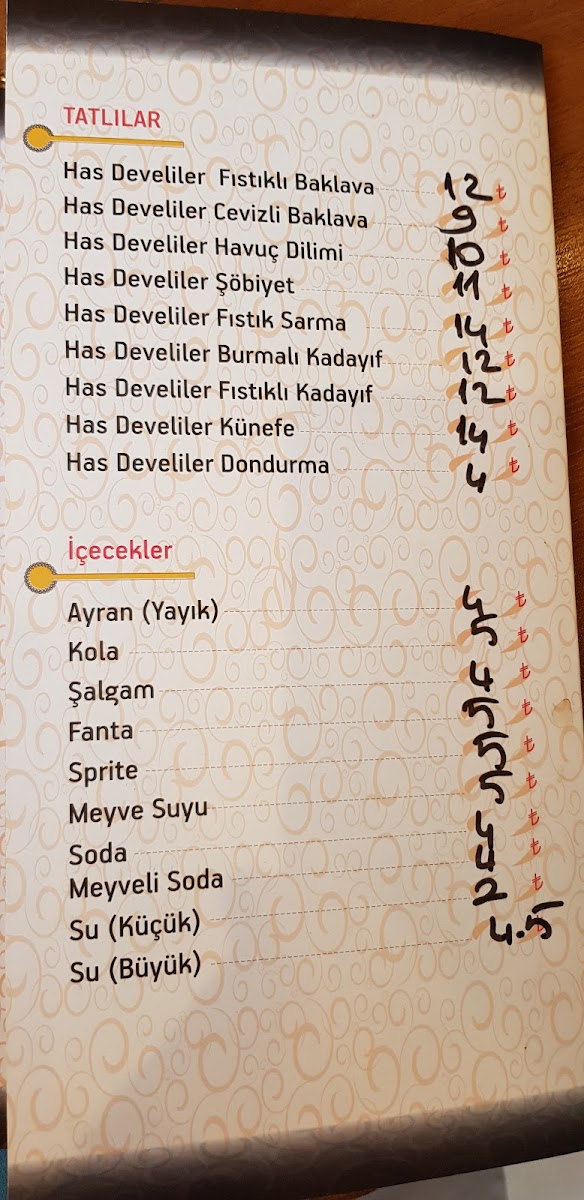 TATLILAR
Has Develiler Fıstıklı Baklava 12 ₺
Has Develiler Cevizli Baklava 9 ₺
Has Develiler Havuç Dilimi 10 ₺
Has Develiler Şöbiyet 11 ₺
Has Develiler Fıstık Sarma 14 ₺
Has Develiler Burmalı Kadayıf 12 ₺
Has Develiler Fıstıklı Kadayıf 12 ₺
Has Develiler Künefe 14 ₺
Has Develiler Dondurma 4 ₺
İçecekler
Ayran (Yayık) 4 ₺
Kola 5 ₺
Şalgam 4 ₺
Fanta 5 ₺
Sprite 5 ₺
Meyve Suyu 5 ₺
Soda 4 ₺
Meyveli Soda 4 ₺
Su (Küçük) 2 ₺
Su (Büyük) 4.5 ₺